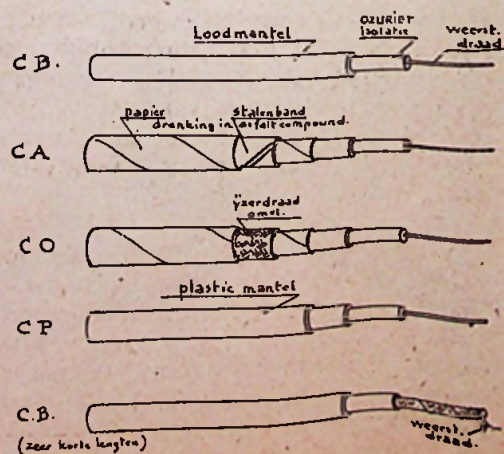 Loodmantel
OZURIET
Isolatie
weerst.
draad
C B.
papier
drenking in asfalt compound.
stalenband
C A
ijzerdraad
omvl.
C O
plastic mantel
C P
C.B.
(zeer korte lengten)
weerst.
draad.